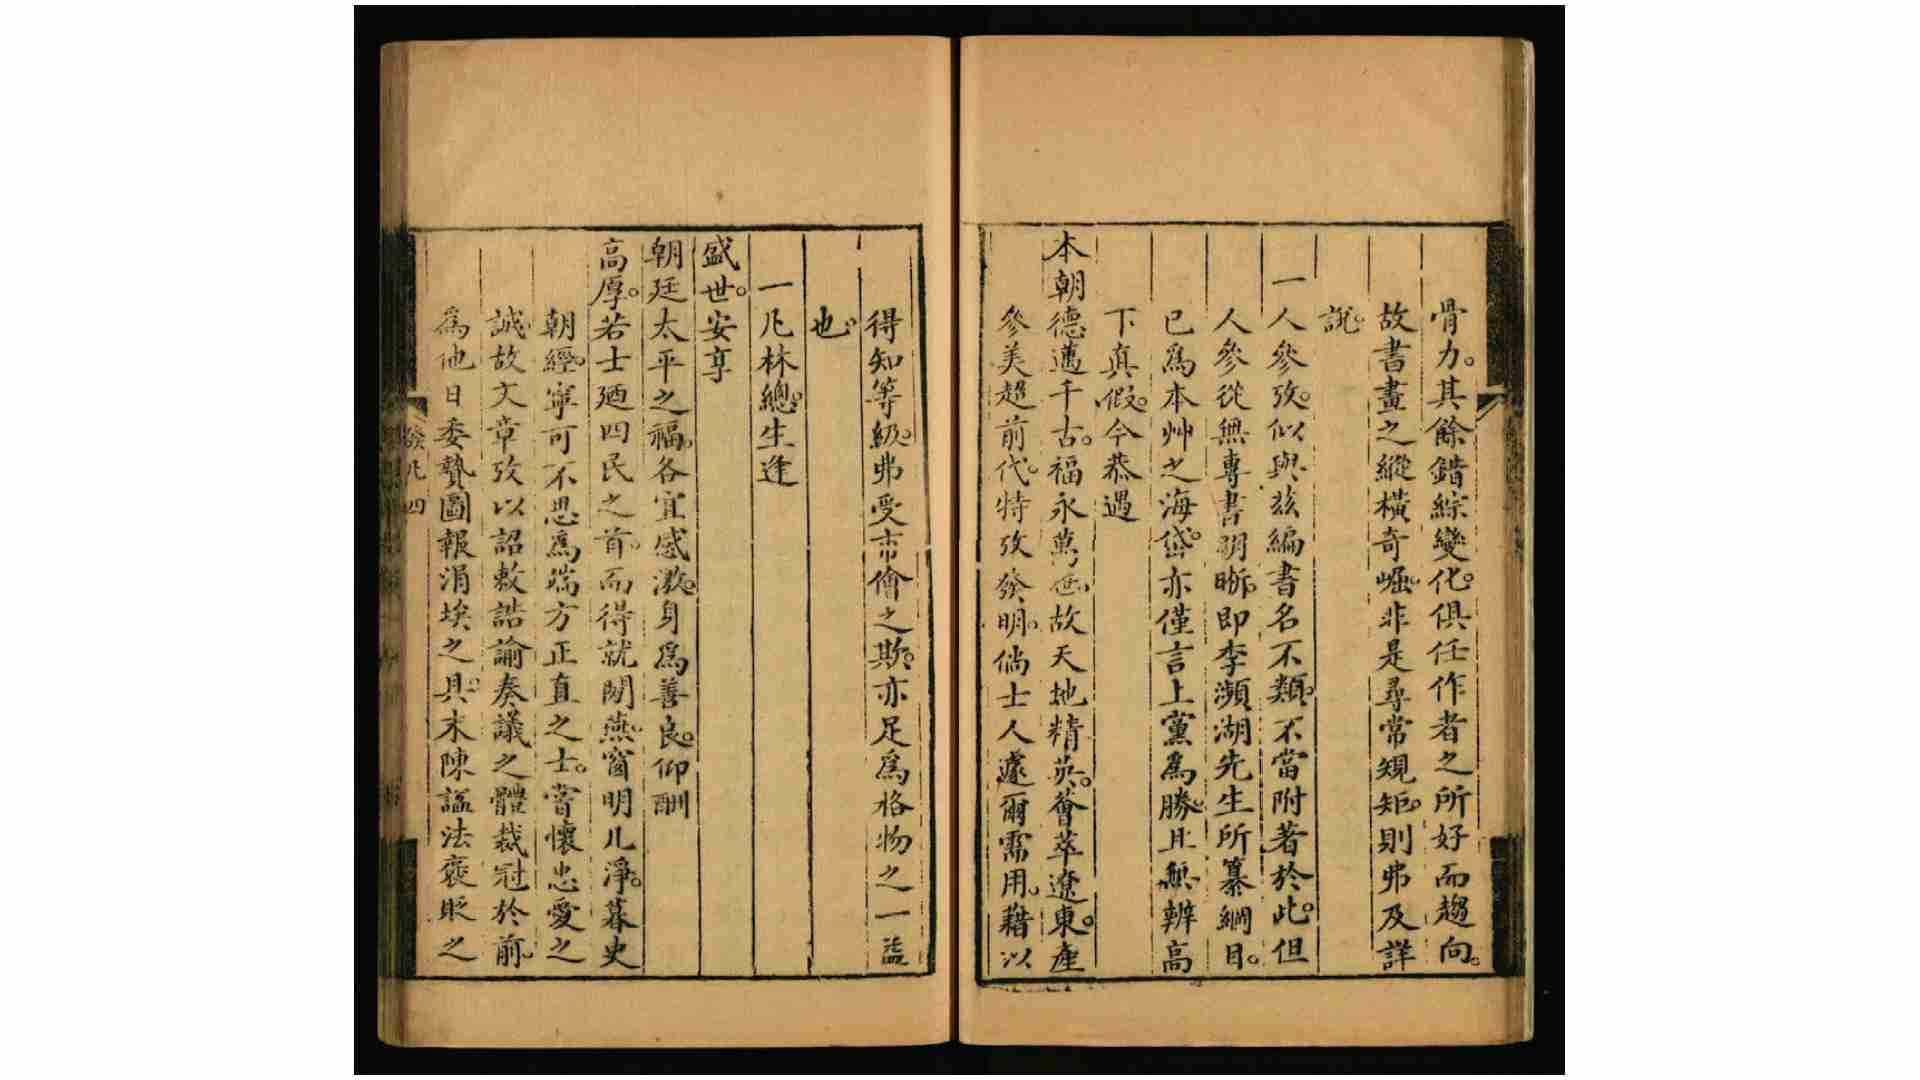 骨力。其餘錯綜變化。俱任作者之所好而趨向。
故書畫之縱橫奇崛。非是尋常規矩。則弗及詳
說。
一人參攷。似與兹編書名不類。不當附著於此。但
人參從無專書明晰。即李瀕湖先生所纂綱目。
已爲本艸之海岱。亦僅言上黨爲勝。且無辨高
下真假。今恭遇
本朝德邁千古。福永萬世。故天地精英。薈萃遼東。產
參美超前代。特攷發明。倘士人遽爾需用。藉以
得知等級。弗受市儈之欺。亦足爲格物之一益
也。
一凡林總。生逢
盛世。安享
朝廷太平之福。各宜感激。身爲善良。仰酬
高厚。若士廼四民之首。而得就閒燕。窗明几淨。暮史
朝經。寧可不思爲端方正直之士。嘗懷忠愛之
誠。故文章攷以詔敕誥諭奏議之體裁冠於前。
爲他日委贄圖報涓埃之具。末陳諡法褒貶之
凡四